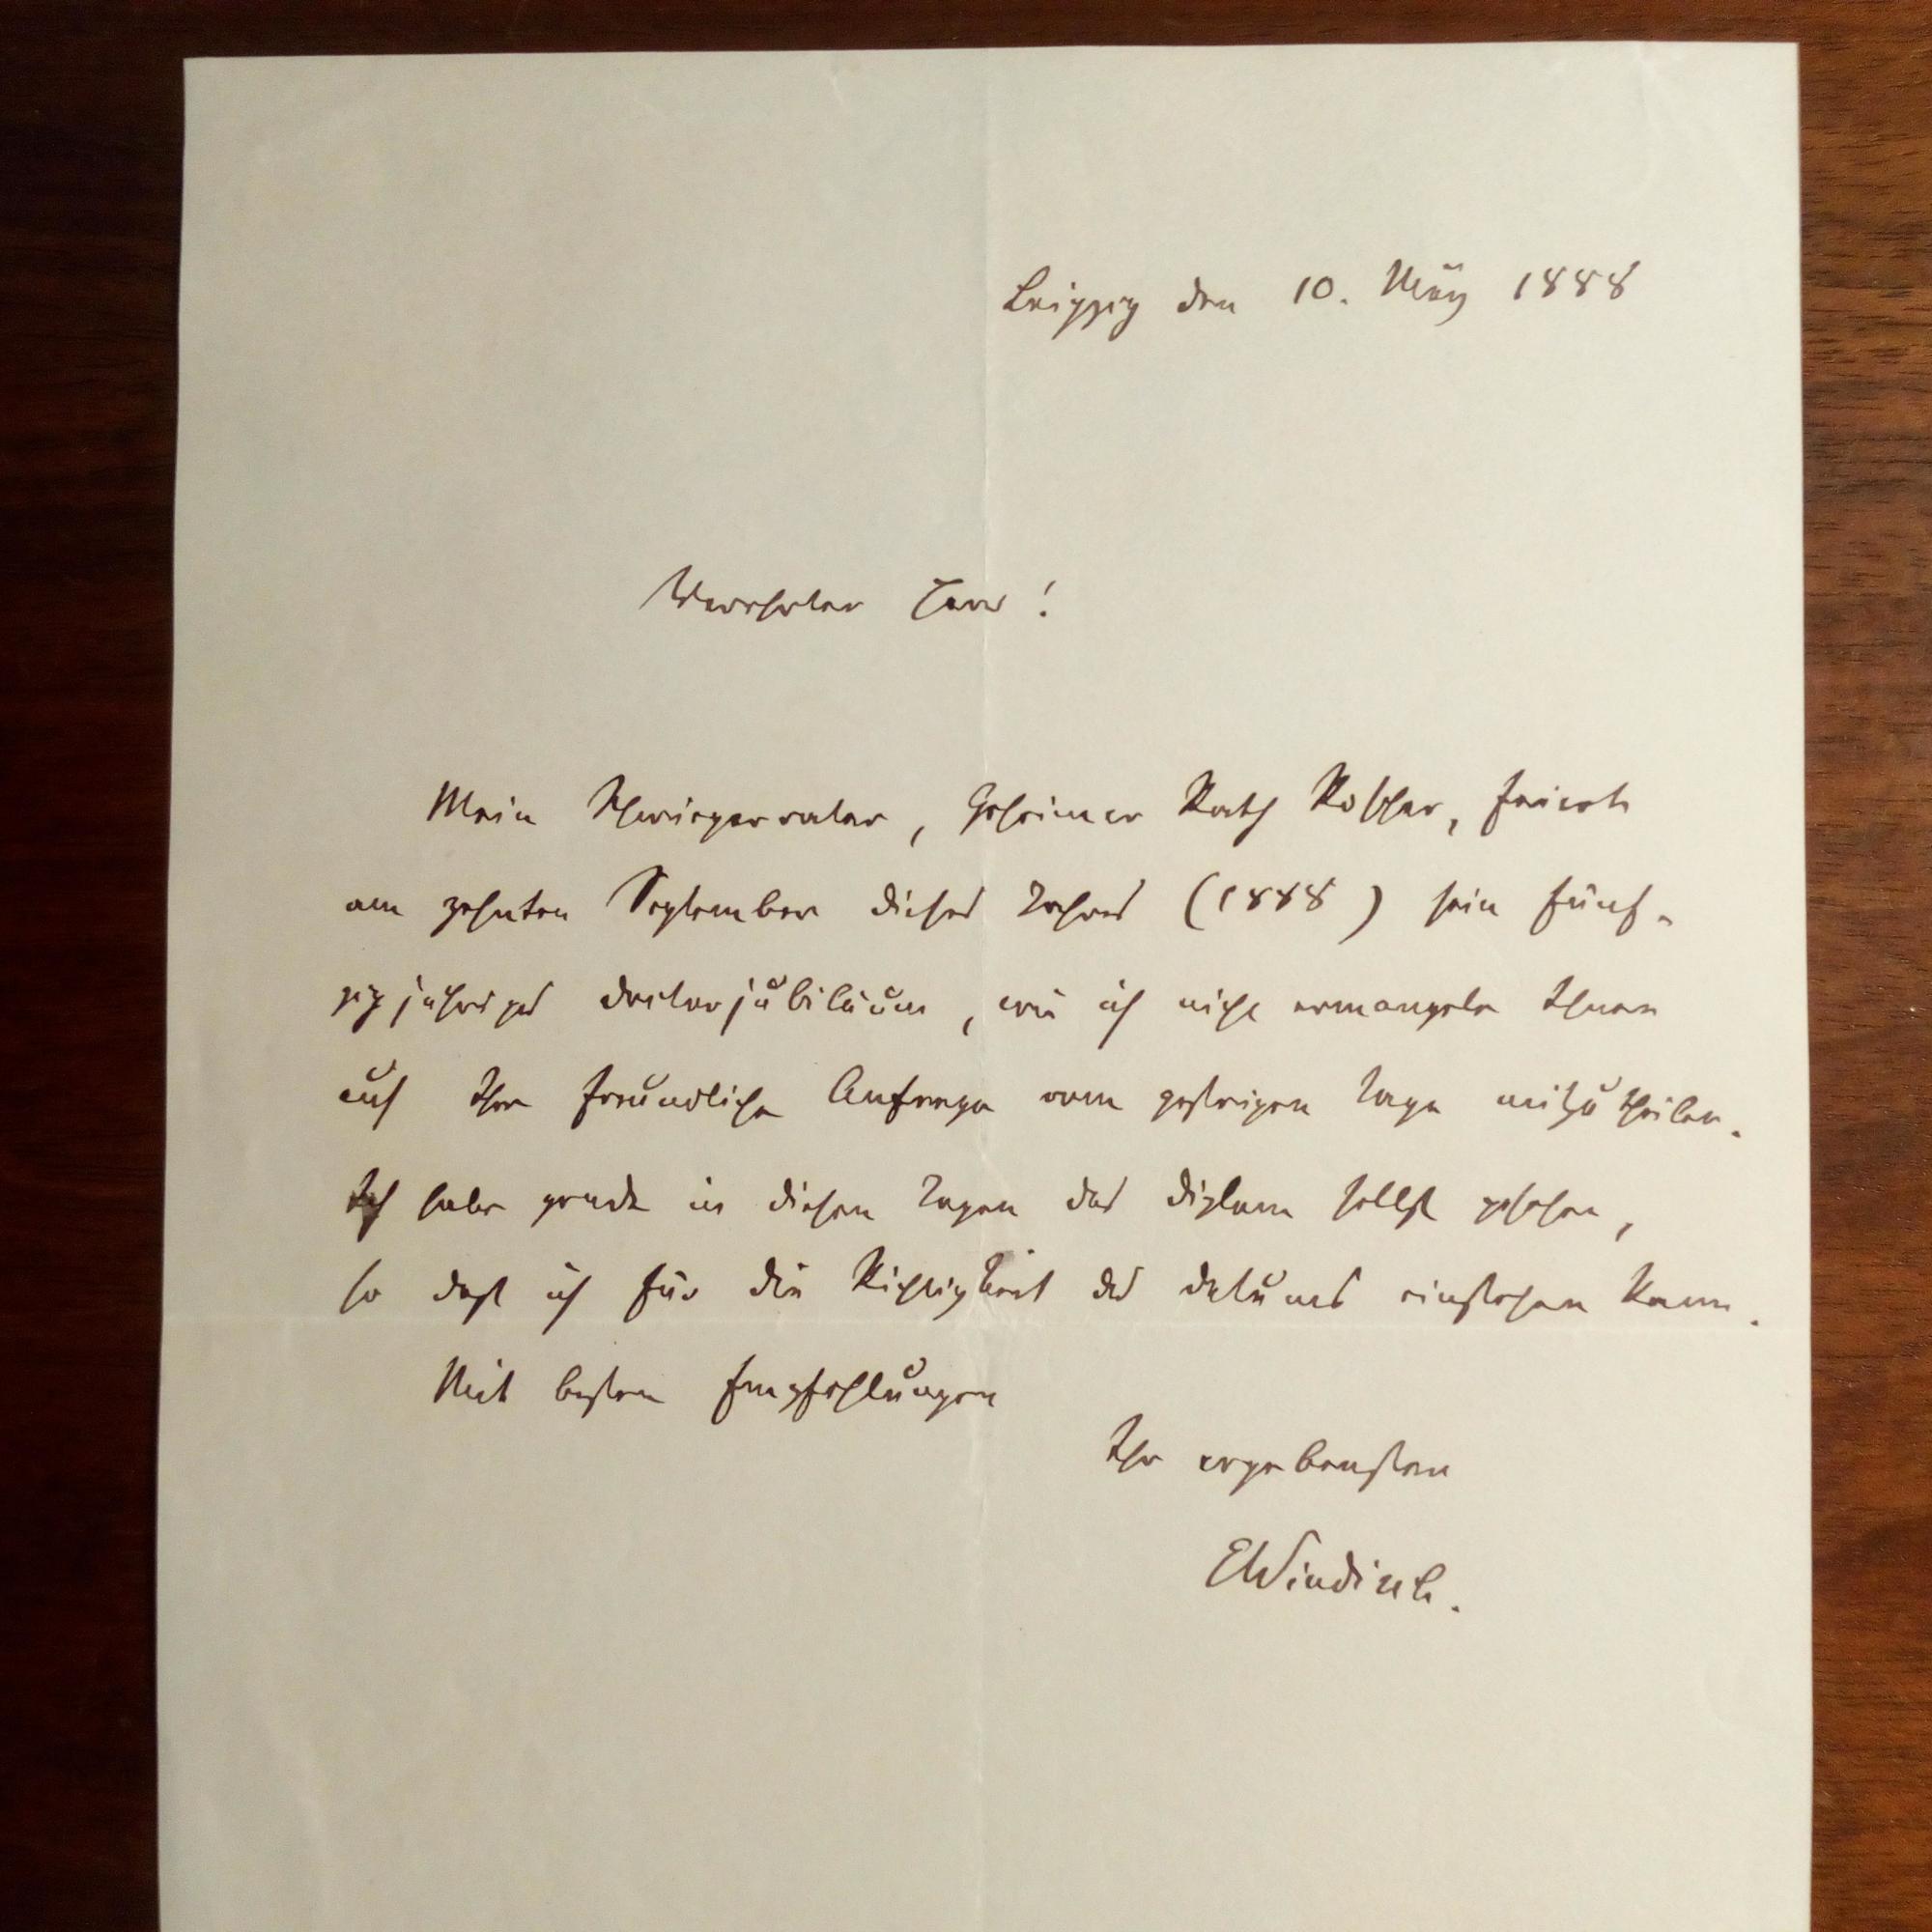 Leipzig den 10. März 1888
Verehrter Herr!
Mein Schwiegervater, Geheimer Rath Roscher, feiert
am zehnten September dieses Jahres (1888) sein fünf-
zigjähriges Doctorjubiläum, wie ich nicht ermangele Ihnen
auf Ihre freundliche Anfrage vom gestrigen Tage mitzutheilen.
Ich habe grade in diesen Tagen das Diplom selbst gesehen,
so daß ich für die Richtigkeit des Datums einstehen kann.
Mit besten Empfehlungen
Ihr ergebenster
EWindisch.